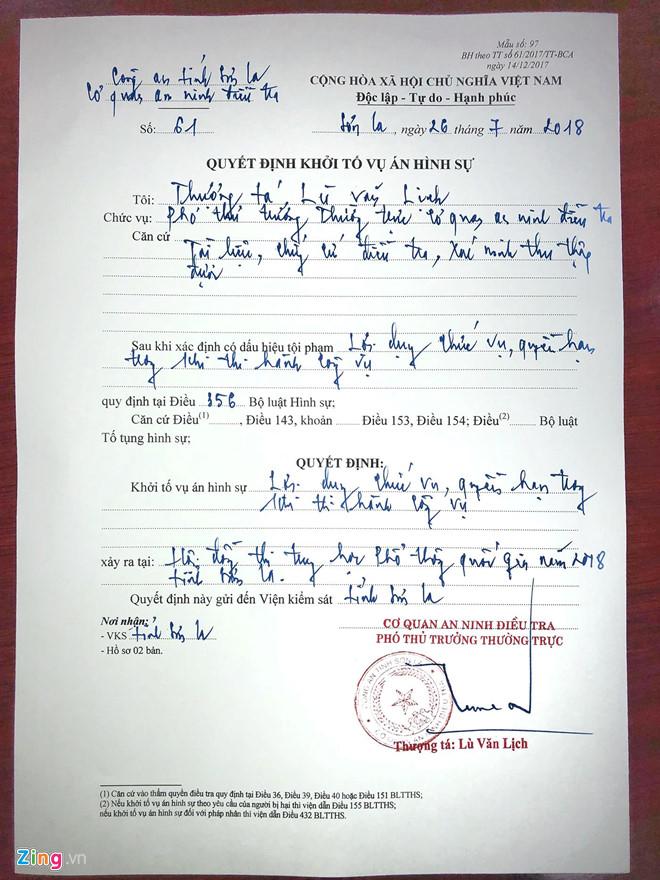 Mẫu số: 97
BH theo TT số 61/2017/TT-BCA
ngày 14/12/2017
Công an tỉnh Sơn La
Cơ quan an ninh điều tra
CỘNG HÒA XÃ HỘI CHỦ NGHĨA VIỆT NAM
Độc lập - Tự do - Hạnh phúc
Số: 61
Sơn La, ngày 26 tháng 7 năm 2018
QUYẾT ĐỊNH KHỞI TỐ VỤ ÁN HÌNH SỰ
Tôi: Thượng tá, Lù Văn Lịch
Chức vụ: Phó thủ trưởng Thường trực Cơ quan an ninh điều tra
Căn cứ
Tài liệu, chứng cứ điều tra, xác minh thu thập
được
Sau khi xác định có dấu hiệu tội phạm Lợi dụng chức vụ, quyền hạn
trong khi thi hành công vụ
quy định tại Điều 356 Bộ luật Hình sự;
Căn cứ Điều(1) , Điều 143, khoản Điều 153, Điều 154; Điều(2) Bộ luật
Tố tụng hình sự;
QUYẾT ĐỊNH:
Khởi tố vụ án hình sự Lợi dụng chức vụ, quyền hạn trong
khi thi hành công vụ
xảy ra tại: Hội đồng thi trung học phổ thông quốc gia năm 2018
tỉnh Sơn La.
Quyết định này gửi đến Viện kiểm sát tỉnh Sơn La
Nơi nhận:
- VKS tỉnh Sơn La
- Hồ sơ 02 bản.
CƠ QUAN AN NINH ĐIỀU TRA
PHÓ THỦ TRƯỞNG THƯỜNG TRỰC
Thượng tá: Lù Văn Lịch
(1) Căn cứ vào thẩm quyền điều tra quy định tại Điều 36, Điều 39, Điều 40 hoặc Điều 151 BLTTHS;
(2) Nếu khởi tố vụ án hình sự theo yêu cầu của người bị hại thì viện dẫn Điều 155 BLTTHS;
nếu khởi tố vụ án hình sự đối với pháp nhân thì viện dẫn Điều 432 BLTTHS.
Zing.vn